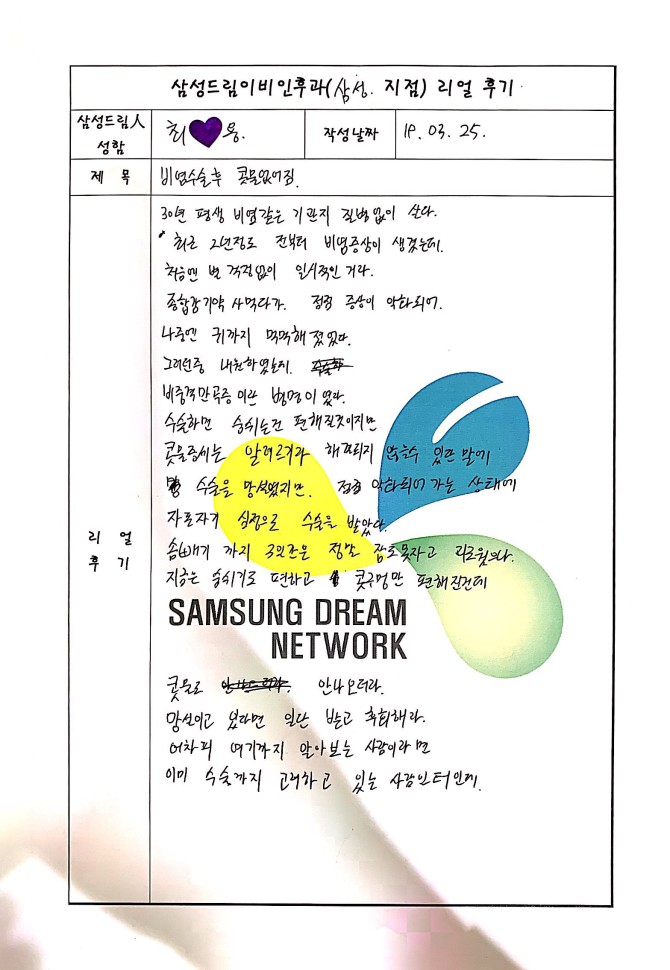 삼성드림이비인후과(삼성. 지점) 리얼 후기
삼성드림人 성함
최 용.
작성날짜
19. 03. 25.
제 목
비염수술후 콧물없어짐.
리 얼 후 기
30년 평생 비염같은 기관지 질병없이 산다.
최근 2년정도 전부터 비염증상이 생겼는데.
처음엔 별 걱정없이 일시적인 거라.
종합감기약 사먹다가. 점점 증상이 악화되어.
나중엔 귀까지 먹먹해 졌었다.
그러던중 내원하였는데.
비중격만곡증 이란 병명이 였다.
수술하면 숨쉬는건 편해질것이지만
콧물증세는 알러르기라 해결되지 않을수 있단 말에
수술을 망설였지만. 점점 악화되어 가는 상태에
자포자기 심정으로 수술을 받았다.
솜빼기 까지 3일간은 정말 잠도못자고 괴로웠으나.
지금은 숨쉬기도 편하고 콧구멍만 편해진건데
SAMSUNG DREAM
NETWORK
콧물도 안나오더라.
망설이고 있다면 일단 받고 후회해라.
어차피 여기까지 알아보는 사람이라면
이미 수술까지 고려하고 있는 사람일터인데.